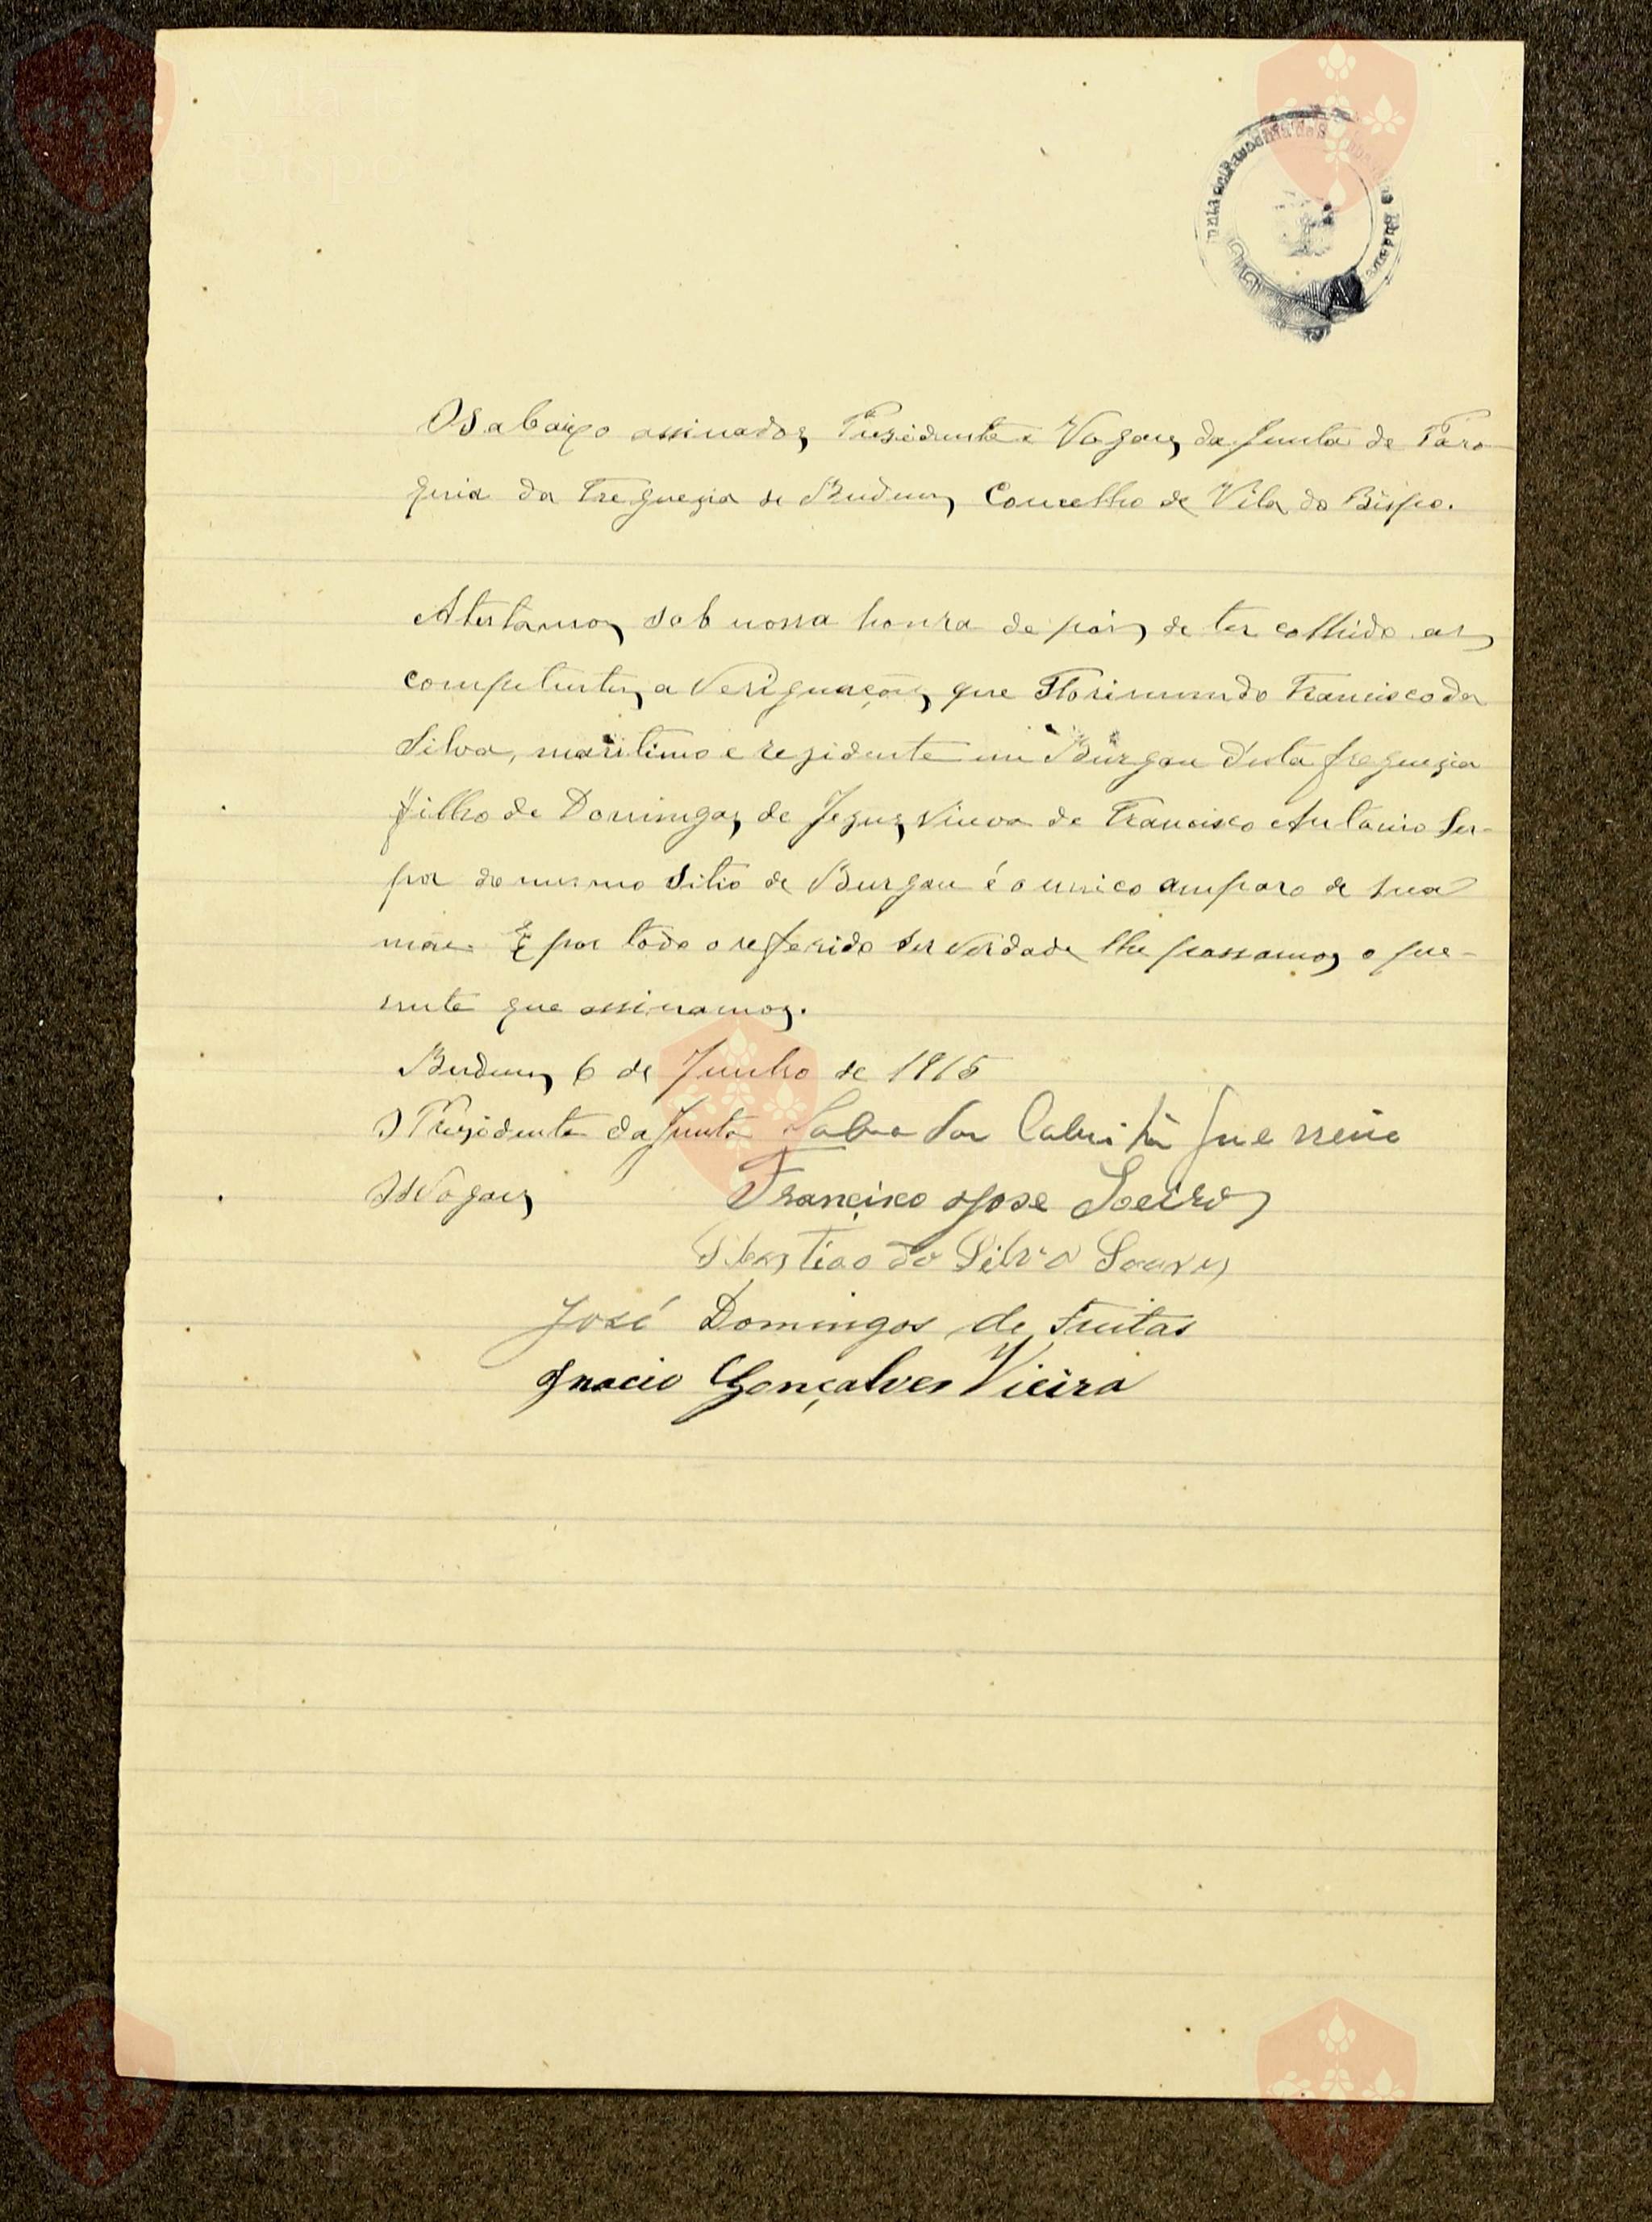 Os abaixo assinados, Presidente e Vogaes da Junta de Paro-
quia da Freguezia de Budens, Concelho de Vila do Bispo.
Atestamos, sob nossa honra de pois de ter colhido as
competentes averiguações, que Florimundo Francisco da
Silva, maritimo e rezidente em Burgau d'esta freguezia
filho de Domingas de Jezus, viuva de Francisco Antonio Ser-
pa do mesmo sitio de Burgau é o unico amparo de sua
mãe. E por todo o referido ser verdade lhe passamos o pre-
sente que assinamos.
Budens, 6 de Junho de 1915
O Prezidente da Junta Salvador Cabrita Guerreiro
Os Vogaes, Francisco Jose Soeiro
Sebastiao da Silva Soares
José Domingos de Freitas
Ignacio Gonçalves Vieira
Vila do
Bispo